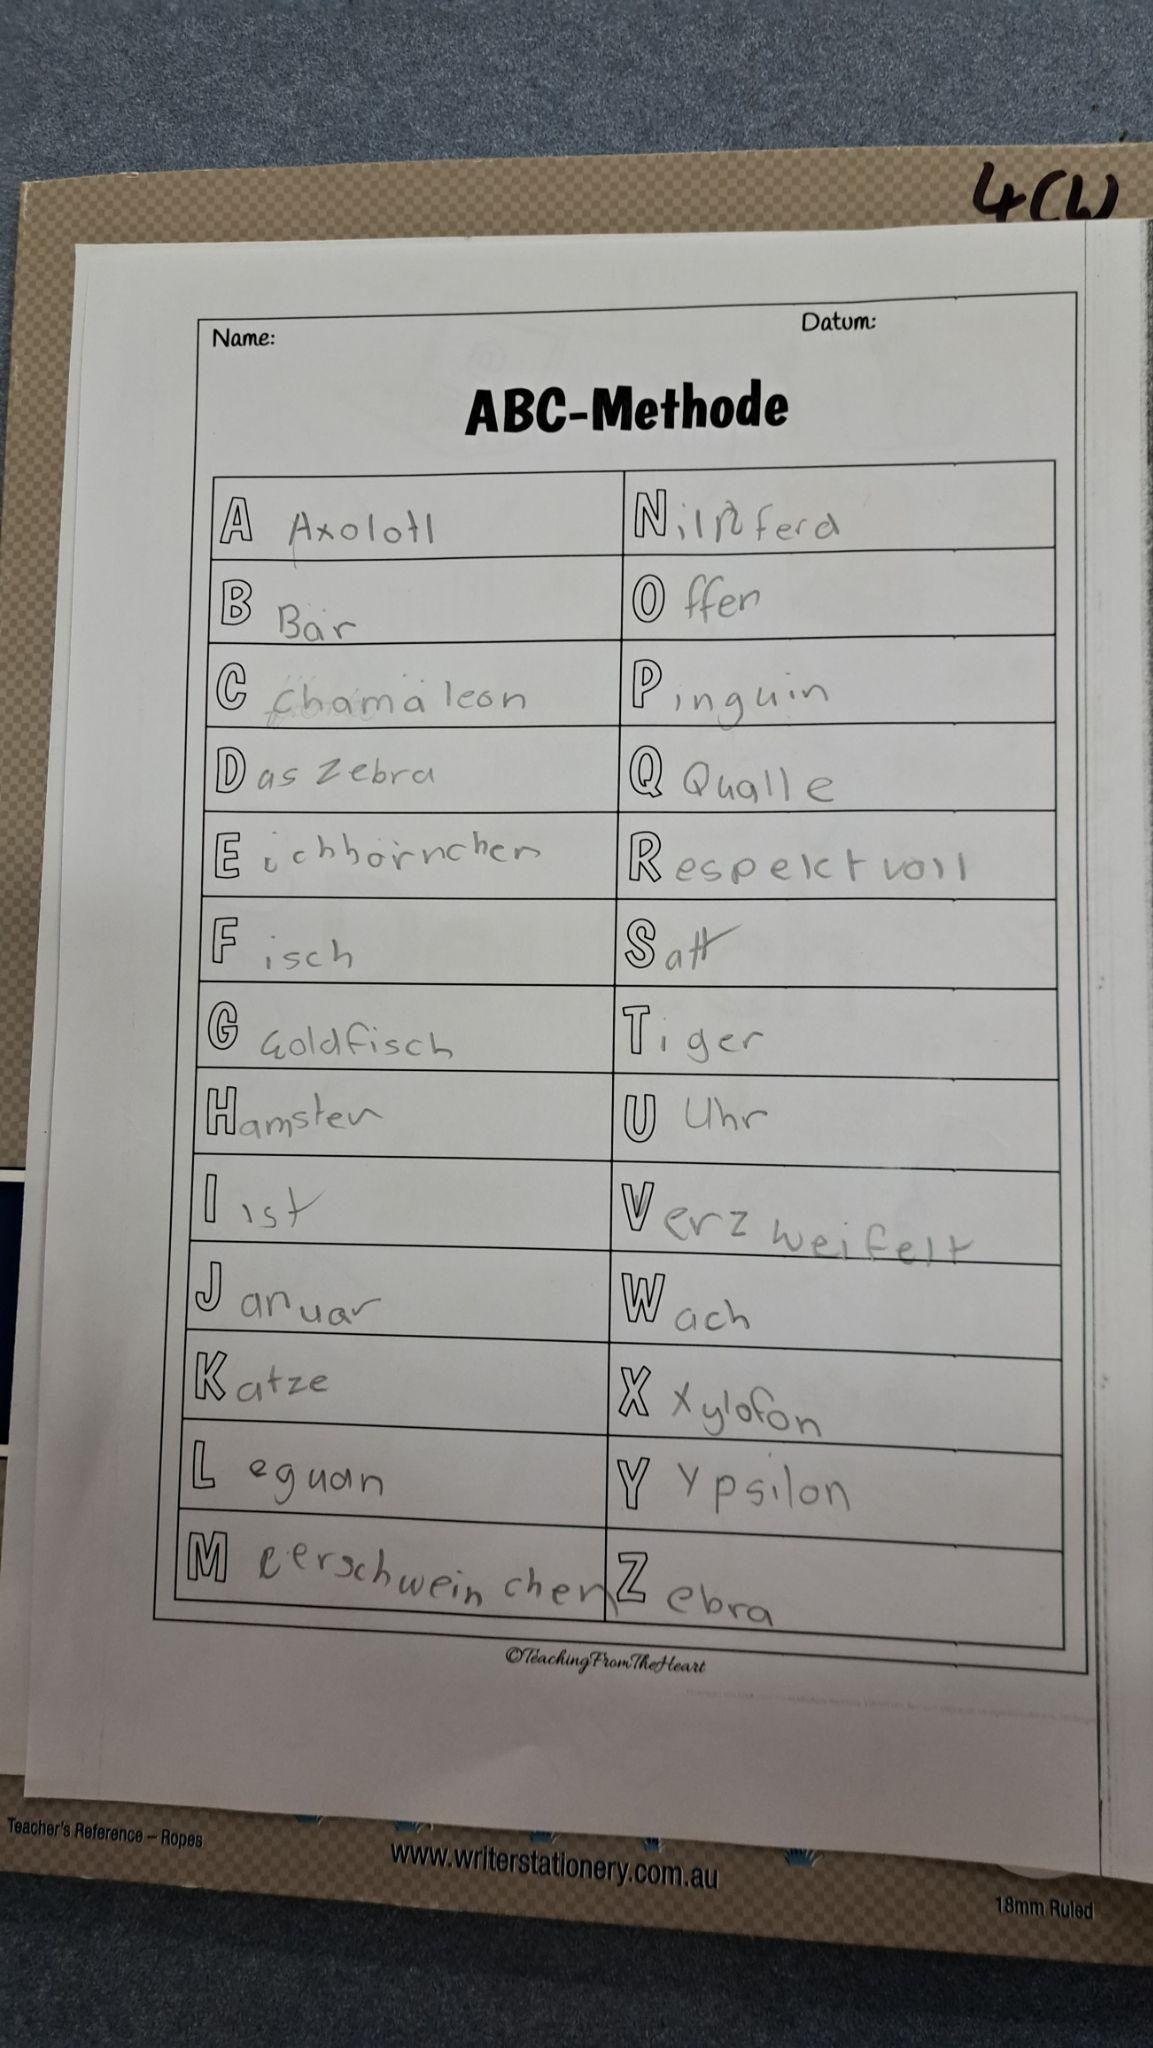 4(h)
Name:
Datum:
ABC-Methode
A Axolotl
B Bär
C Chamäleon
D as Zebra
E ichhörnchen
F isch
G Goldfisch
H amster
I ist
J anuar
K atze
L eguan
M eerschweinchen
N ilpferd
O ffen
P inguin
Q Qualle
R espektvoll
S att
T iger
U Uhr
V erzweifelt
W ach
X Xylofon
Y Ypsilon
Z ebra
©TeachingFromTheHeart
Teacher's Reference – Ropes
www.writerstationery.com.au
18mm Ruled